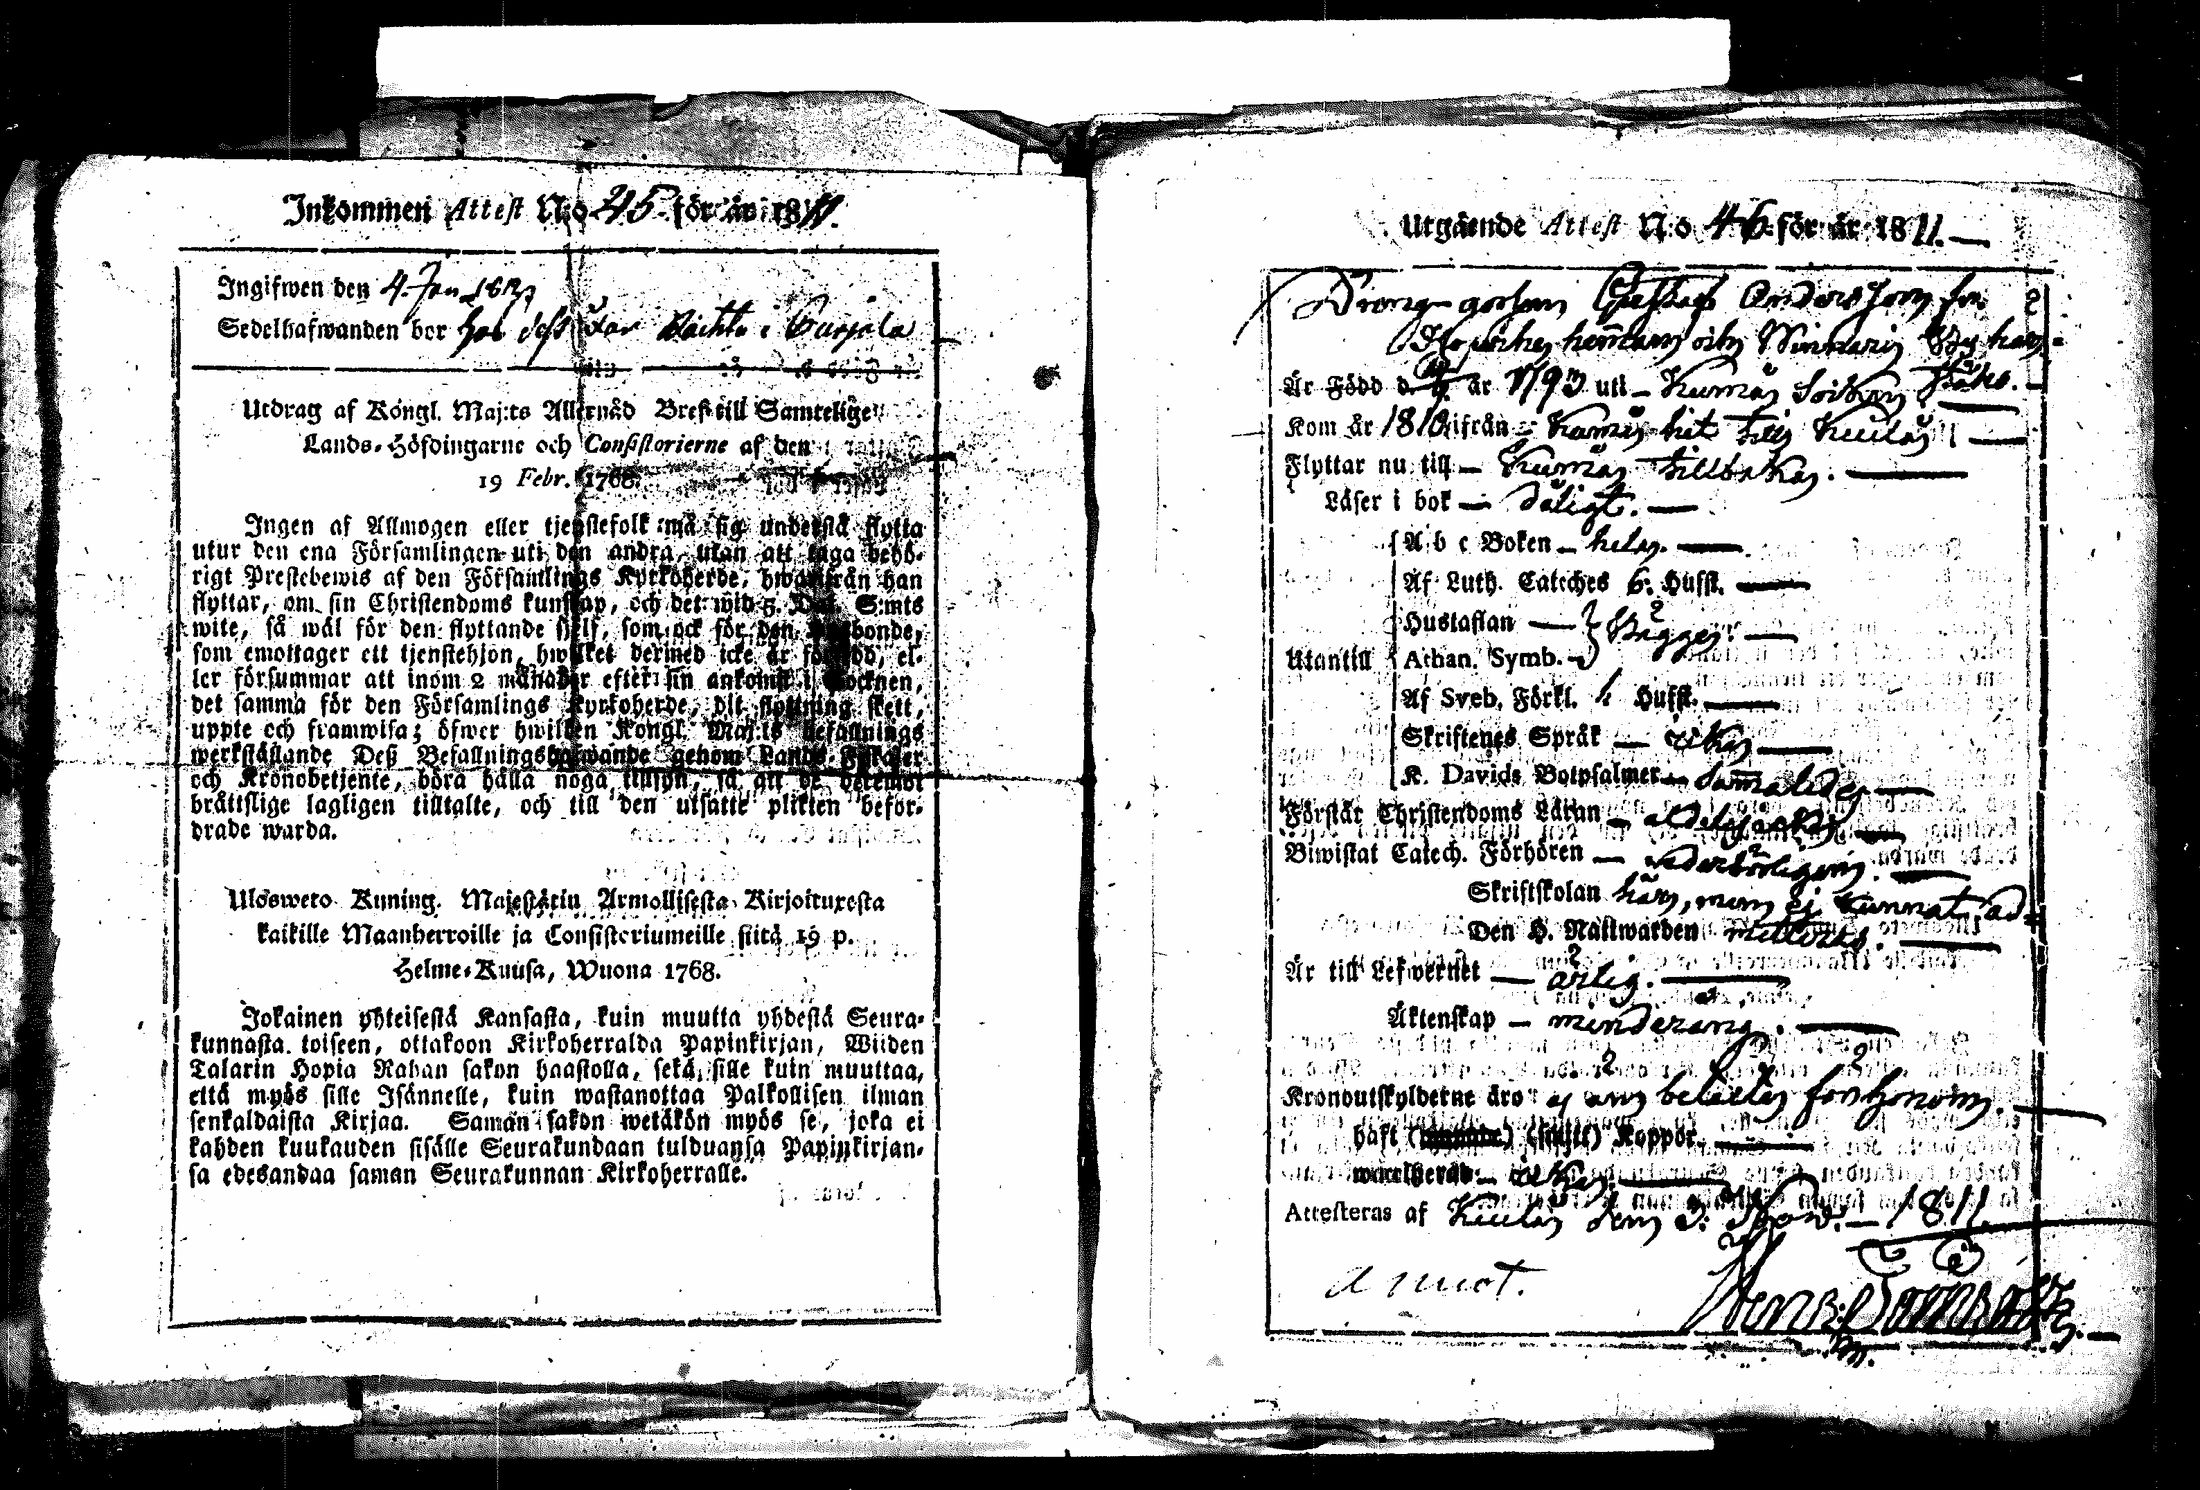 Inkommen Attest N:o 45 för år 1811.
Ingifwen den 4. Jan 1812
Sedelhafwanden bor hos dess Far i
Utdrag af Kongl. Maj:ts Allernåd Bref till Samtelige
Lands-Höfdingarne och Consistorierne af den
19 Febr. 1768.
Ingen af Allmogen eller tjenstefolk må sig understå flytta
utur den ena Församlingen uti den andra, utan att taga behö-
rigt Prestebewis af den Församlings Kyrkoherde, hwarifrån han
flyttar, om sin Christendoms kunskap, och det wid 5. Dal. S:mts
wite, så wäl för den flyttande sjelf, som ock för den husbonde,
som emottager ett tjenstehjon, hwilket dermed icke är försedd, el-
ler försummar att inom 2 månader efter sin ankomst i Socknen,
det samma för den Församlings Kyrkoherde, dit flyttning skett,
uppte och framwisa; öfwer hwilken Kongl. Maj:ts befallnings
werkställande Deß Befallningshafwande genom Lands-Fiskaler
och Kronobetjente, böra hålla noga tillsyn, så att de deremot
bråttslige lagligen tilltalte, och till den utsatte plikten befor-
drade warda.
Ulosweto Kuning. Majestätin Armollisesta Kirjoituxesta
kaikille Maanherroille ja Consistoriumeille siitä 19 p.
Helme-Kuusa, Wuona 1768.
Jokainen yhteisestä Kansasta, kuin muutta yhdestä Seura-
kunnasta toiseen, ottakoon Kirkoherralda Papinkirjan, Wiiden
Talarin Hopia Rahan sakon haastolla, sekä sille kuin muuttaa,
että myös sille Isännelle, kuin wastanottaa Palkollisen ilman
senkaldaista Kirjaa. Saman sakon wetäkön myös se, joka ei
kahden kuukauden sisälle Seurakundaan tulduansa Papinkirjan-
sa edesandaa saman Seurakunnan Kirkoherralle.
Utgående Attest N:o 46 för år 1811.
Drong gossen Andersson från
hemman och By har
Är Född d. år 1793 uti Kumå Sokn
Kom år 1810 ifrån Kumå hit till Kiulå
Flyttar nu till Kumå tillbaka.
Läser i bok dåligt.
A b c Boken hela.
Af Luth. Cateches 6. Hufst.
Hustaflan
Utantill Athan. Symb. Bägge.
Af Sveb. Förkl. Hufst.
Skriftenes Språk icke
K. Davids Botpsalmer sammaledes
Förstår Christendoms Läran aldeles icke
Biwistat Catech. Förhören wederbörligen.
Skriftskolan här, men ej kunnat ad-
Den H. Nattwarden mitteras.
Är till Lefwernet ärlig.
Äktenskap minderårig.
Kronoutskylderne äro ej än betalda för honom.
haft Koppor.
icke
Attesteras af Kiulå den 3. Now. 1811.